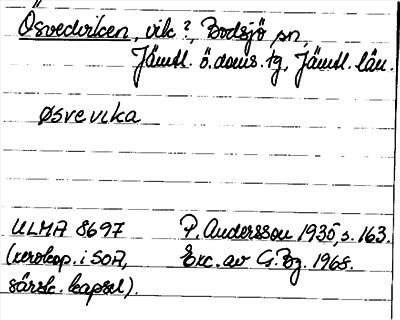 Ösvedviken, vik?, Bodsjö sn,
Jämtl. ö. doms. tg, Jämtl. län.
øsvevika
ULMA 8697 P. Andersson 1935, s. 163.
(xerokop. i SOA, Exc. av G. Bg. 1968.
särsk. kapsel).